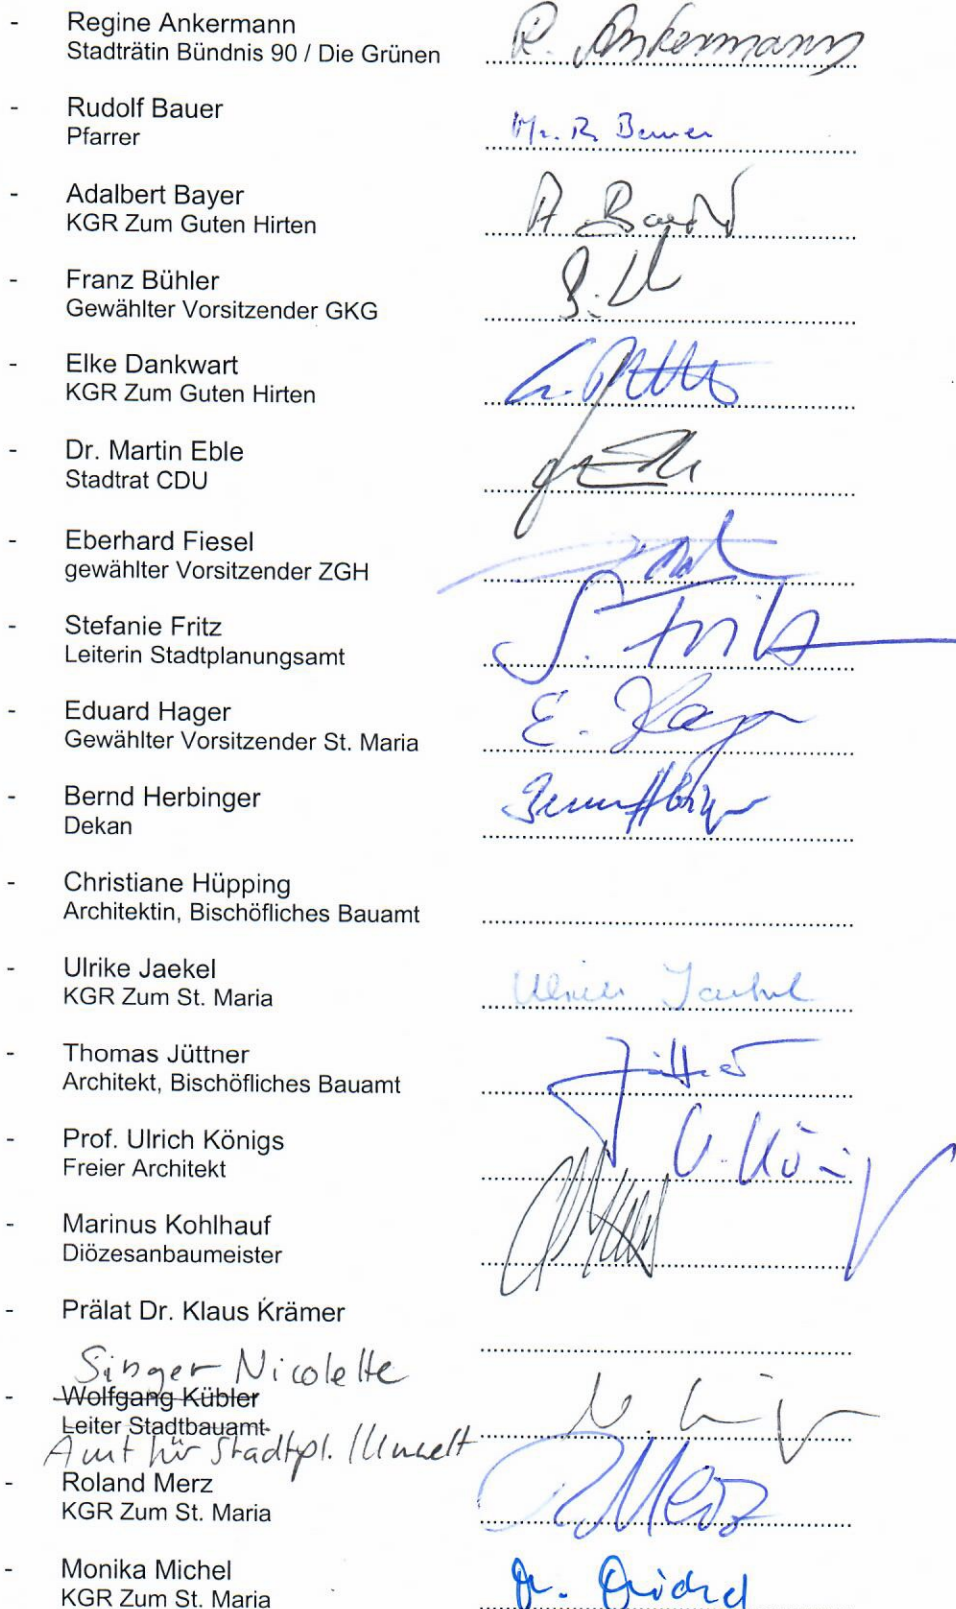 - Regine Ankermann
Stadträtin Bündnis 90 / Die Grünen
R. Ankermann
- Rudolf Bauer
Pfarrer
- Adalbert Bayer
KGR Zum Guten Hirten
- Franz Bühler
Gewählter Vorsitzender GKG
- Elke Dankwart
KGR Zum Guten Hirten
- Dr. Martin Eble
Stadtrat CDU
- Eberhard Fiesel
gewählter Vorsitzender ZGH
- Stefanie Fritz
Leiterin Stadtplanungsamt
S. Fritz
- Eduard Hager
Gewählter Vorsitzender St. Maria
E. Hager
- Bernd Herbinger
Dekan
- Christiane Hüpping
Architektin, Bischöfliches Bauamt
- Ulrike Jaekel
KGR Zum St. Maria
Ulrike Jaekel
- Thomas Jüttner
Architekt, Bischöfliches Bauamt
Jüttner
- Prof. Ulrich Königs
Freier Architekt
U. König
- Marinus Kohlhauf
Diözesanbaumeister
- Prälat Dr. Klaus Krämer
Singer Nicolette
- Wolfgang Kübler
Leiter Stadtbauamt
Amt für Stadtpl. / Umwelt
- Roland Merz
KGR Zum St. Maria
R Merz
- Monika Michel
KGR Zum St. Maria
M. Michel